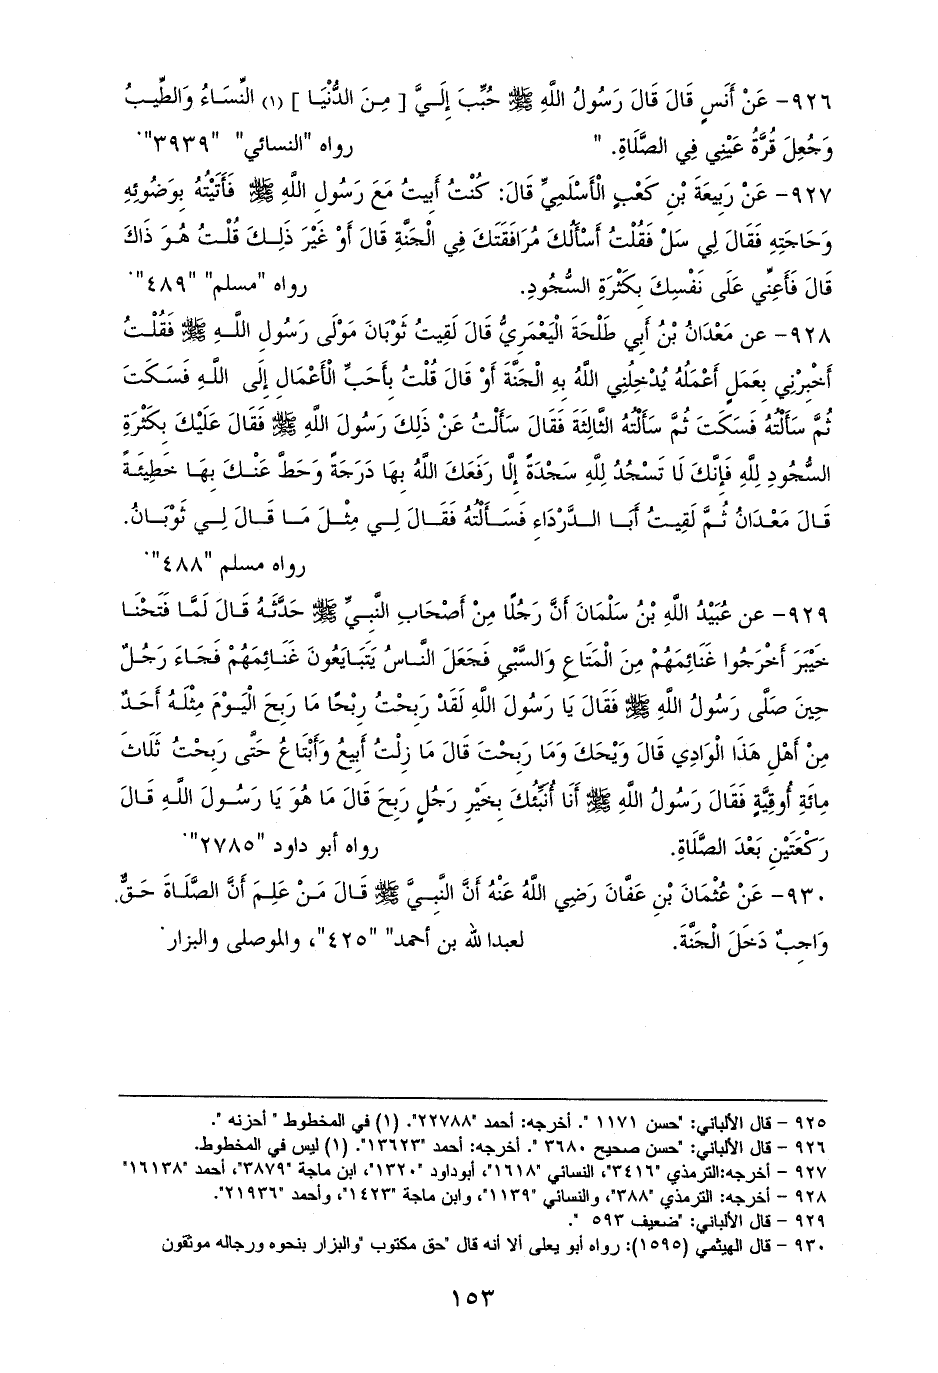 ٩٢٦- عَنْ أَنَسٍ قَالَ قَالَ رَسُولُ اللَّهِ ﷺ حُبِّبَ إِلَيَّ [ مِنَ الدُّنْيَا ] (١) النِّسَاءُ وَالطِّيبُ
وَجُعِلَ قُرَّةُ عَيْنِي فِي الصَّلَاةِ. " رواه "النسائي" "٣٩٣٩".
٩٢٧- عَنْ رَبِيعَةَ بْنِ كَعْبٍ الْأَسْلَمِيِّ قَالَ: كُنْتُ أَبِيتُ مَعَ رَسُولِ اللَّهِ ﷺ فَأَتَيْتُهُ بِوَضُوئِهِ
وَحَاجَتِهِ فَقَالَ لِي سَلْ فَقُلْتُ أَسْأَلُكَ مُرَافَقَتَكَ فِي الْجَنَّةِ قَالَ أَوْ غَيْرَ ذَلِكَ قُلْتُ هُوَ ذَاكَ
قَالَ فَأَعِنِّي عَلَى نَفْسِكَ بِكَثْرَةِ السُّجُودِ. رواه "مسلم" "٤٨٩".
٩٢٨- عن مَعْدَانُ بْنُ أَبِي طَلْحَةَ الْيَعْمَرِيُّ قَالَ لَقِيتُ ثَوْبَانَ مَوْلَى رَسُولِ اللَّهِ ﷺ فَقُلْتُ
أَخْبِرْنِي بِعَمَلٍ أَعْمَلُهُ يُدْخِلُنِي اللَّهُ بِهِ الْجَنَّةَ أَوْ قَالَ قُلْتُ بِأَحَبِّ الْأَعْمَالِ إِلَى اللَّهِ فَسَكَتَ
ثُمَّ سَأَلْتُهُ فَسَكَتَ ثُمَّ سَأَلْتُهُ الثَّالِثَةَ فَقَالَ سَأَلْتُ عَنْ ذَلِكَ رَسُولَ اللَّهِ ﷺ فَقَالَ عَلَيْكَ بِكَثْرَةِ
السُّجُودِ لِلَّهِ فَإِنَّكَ لَا تَسْجُدُ لِلَّهِ سَجْدَةً إِلَّا رَفَعَكَ اللَّهُ بِهَا دَرَجَةً وَحَطَّ عَنْكَ بِهَا خَطِيئَةً
قَالَ مَعْدَانُ ثُمَّ لَقِيتُ أَبَا الدَّرْدَاءِ فَسَأَلْتُهُ فَقَالَ لِي مِثْلَ مَا قَالَ لِي ثَوْبَانُ.
رواه مسلم "٤٨٨".
٩٢٩- عن عُبَيْدُ اللَّهِ بْنُ سَلْمَانَ أَنَّ رَجُلًا مِنْ أَصْحَابِ النَّبِيِّ ﷺ حَدَّثَهُ قَالَ لَمَّا فَتَحْنَا
خَيْبَرَ أَخْرَجُوا غَنَائِمَهُمْ مِنَ الْمَتَاعِ وَالسَّبْيِ فَجَعَلَ النَّاسُ يَتَبَايَعُونَ غَنَائِمَهُمْ فَجَاءَ رَجُلٌ
حِينَ صَلَّى رَسُولُ اللَّهِ ﷺ فَقَالَ يَا رَسُولَ اللَّهِ لَقَدْ رَبِحْتُ رِبْحًا مَا رَبِحَ الْيَوْمَ مِثْلَهُ أَحَدٌ
مِنْ أَهْلِ هَذَا الْوَادِي قَالَ وَيْحَكَ وَمَا رَبِحْتَ قَالَ مَا زِلْتُ أَبِيعُ وَأَبْتَاعُ حَتَّى رَبِحْتُ ثَلَاثَ
مِائَةِ أُوقِيَّةٍ فَقَالَ رَسُولُ اللَّهِ ﷺ أَنَا أُنَبِّئُكَ بِخَيْرِ رَجُلٍ رَبِحَ قَالَ مَا هُوَ يَا رَسُولَ اللَّهِ قَالَ
رَكْعَتَيْنِ بَعْدَ الصَّلَاةِ. رواه أبو داود "٢٧٨٥".
٩٣٠- عَنْ عُثْمَانَ بْنِ عَفَّانَ رَضِي اللَّهُ عَنْهُ أَنَّ النَّبِيَّ ﷺ قَالَ مَنْ عَلِمَ أَنَّ الصَّلَاةَ حَقٌّ
وَاجِبٌ دَخَلَ الْجَنَّةَ. لعبدا لله بن أحمد" "٤٢٥"، والموصلى والبزار.
٩٢٥ - قال الألباني: "حسن ١١٧١ ". أخرجه: أحمد "٢٢٧٨٨". (١) في المخطوط " أحزنه ".
٩٢٦ - قال الألباني: "حسن صحيح ٣٦٨٠ ". أخرجه: أحمد "١٣٦٢٣". (١) ليس في المخطوط.
٩٢٧ - أخرجه:الترمذي "٣٤١٦"، النسائي "١٦١٨"، أبوداود "١٣٢٠"، ابن ماجة "٣٨٧٩"، أحمد "١٦١٣٨"
٩٢٨ - أخرجه: الترمذي "٣٨٨"، والنسائي "١١٣٩"، وابن ماجة "١٤٢٣"، وأحمد "٢١٩٣٦".
٩٢٩ - قال الألباني: "ضعيف ٥٩٣ ".
٩٣٠ - قال الهيثمي (١٥٩٥): رواه أبو يعلى ألا أنه قال "حق مكتوب "والبزار بنحوه ورجاله موثقون
١٥٣